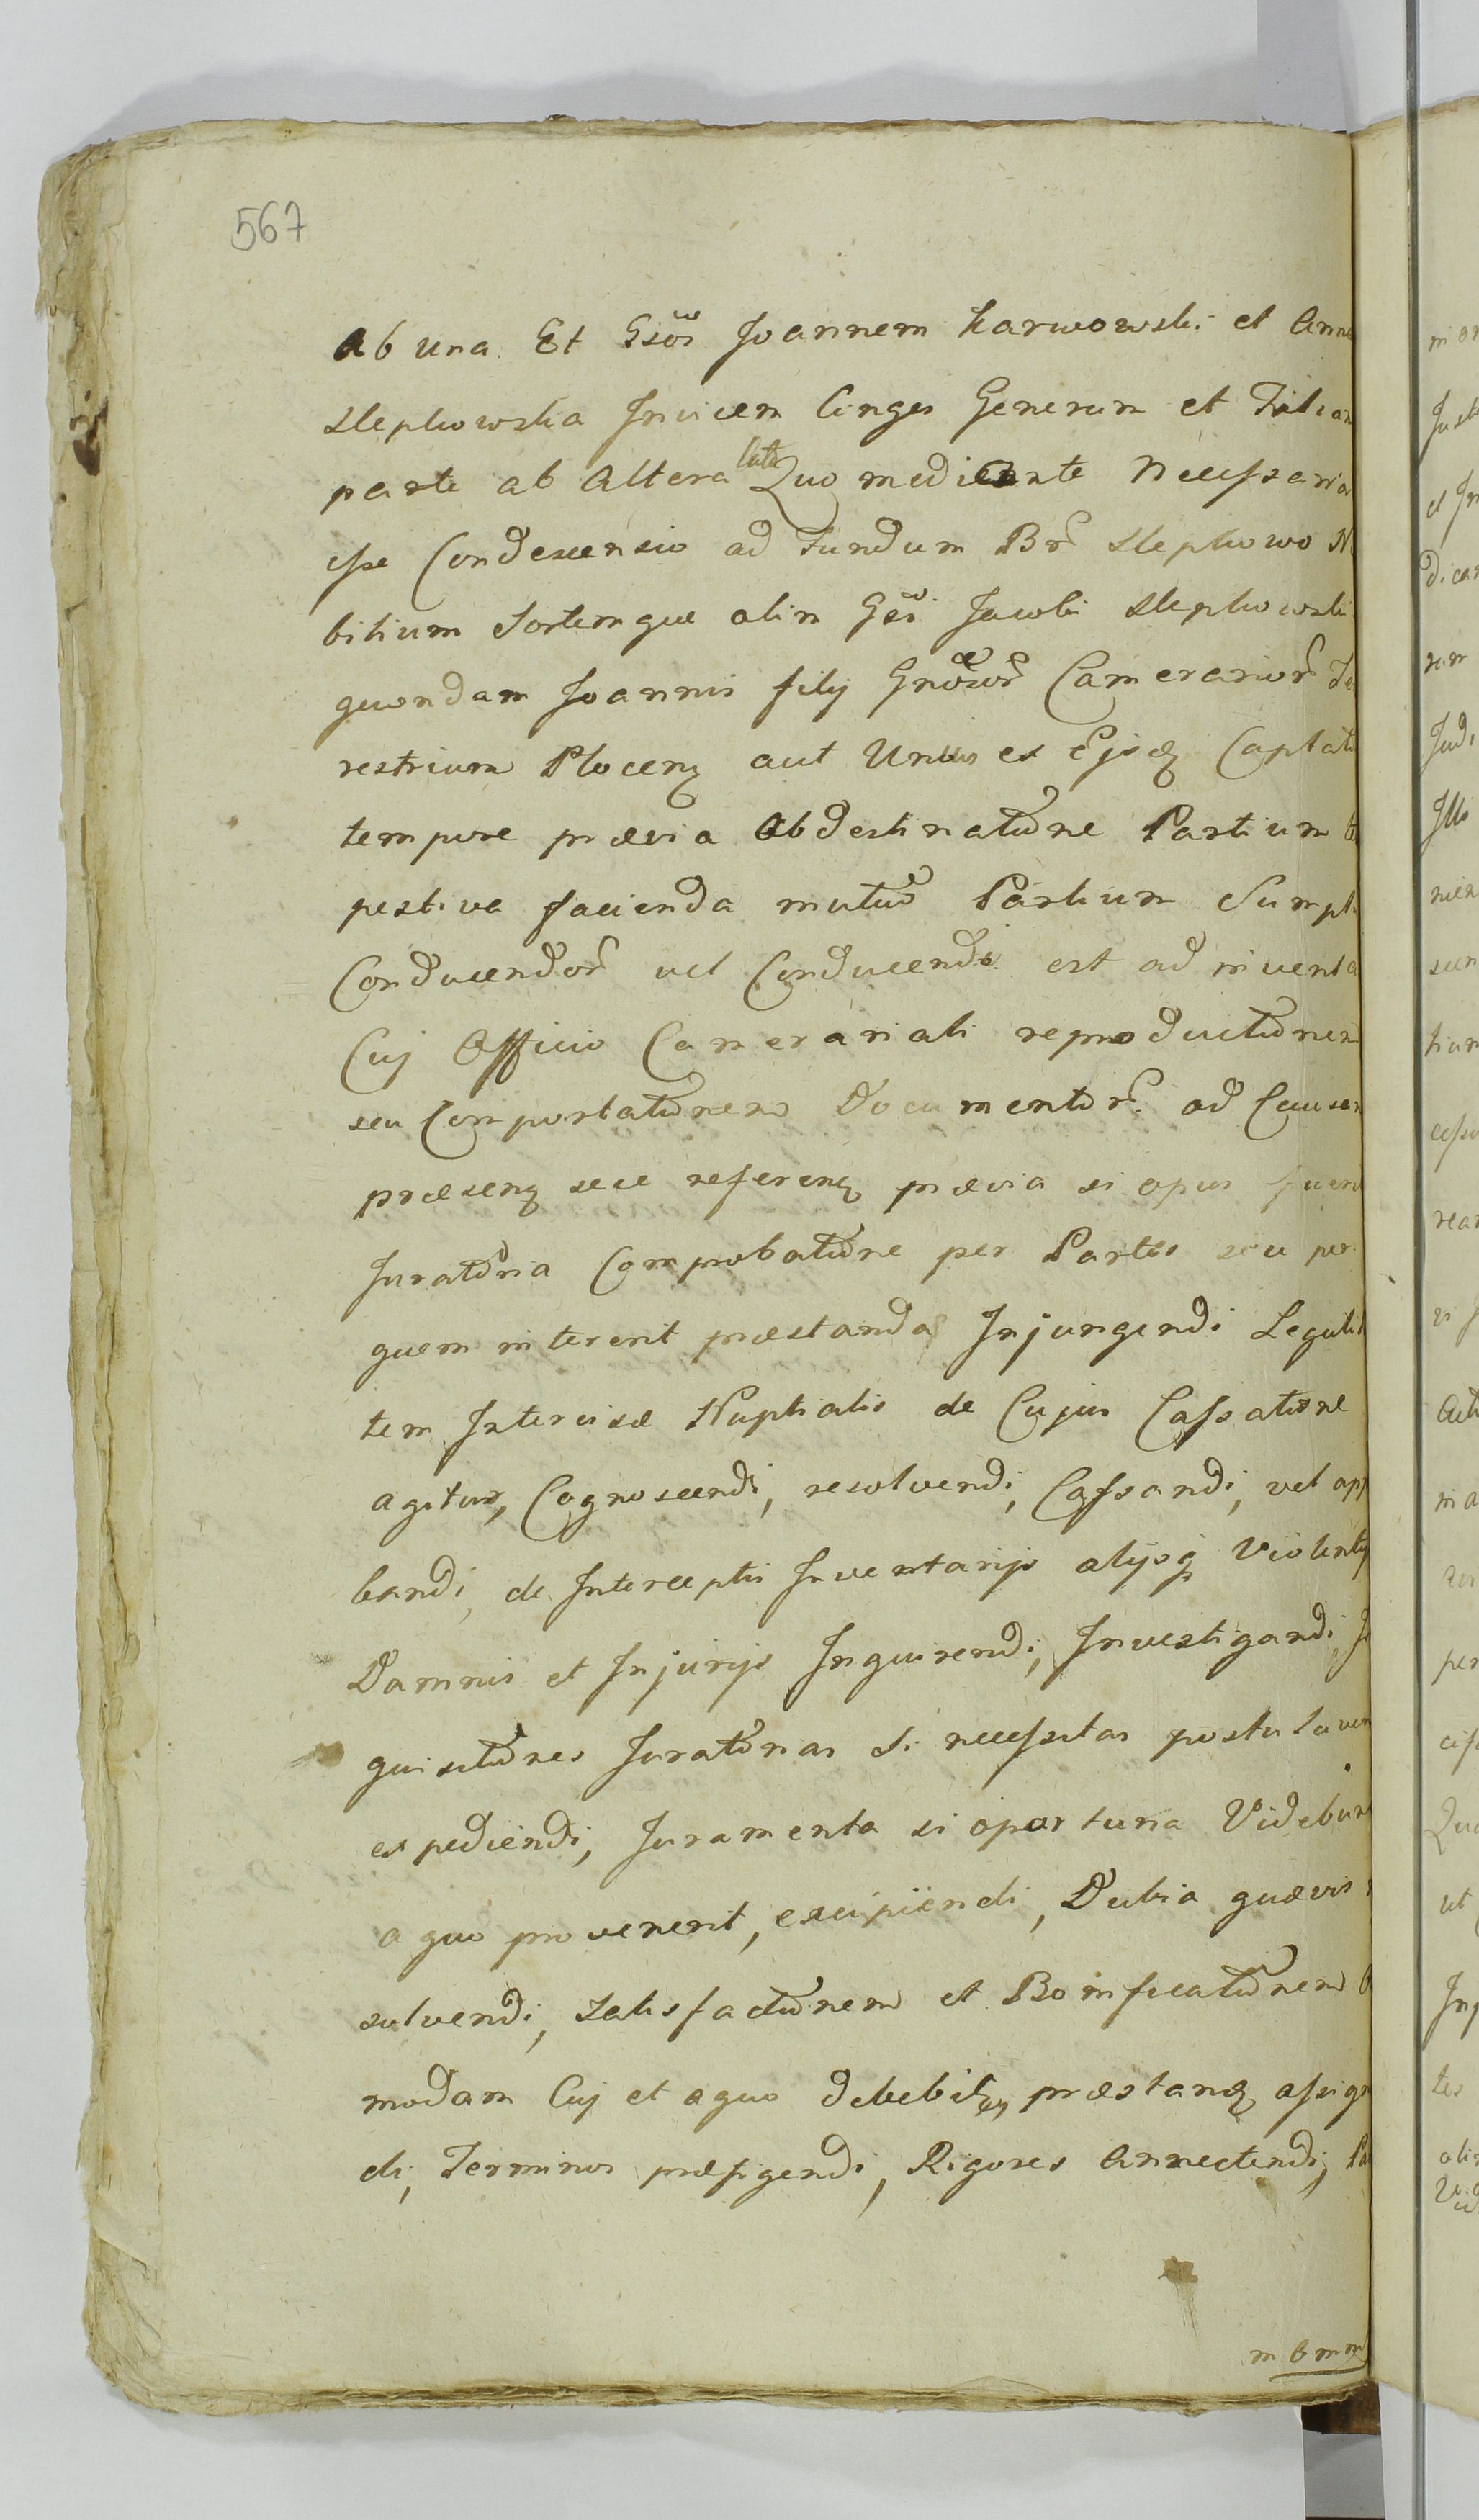 567
Ab una Et Gsos Joannem Karwowski et Anna
Slepkowska Invicem Cinges Generum et Filiam
parte ab Altera late Quo mediante Necessaria
esse Condescensio ad Fundum Br Slepkowo N
bilium Sortemque olim Gsi Jacobi Slepkowski
quondam Joannis filij Camerarior Ter
restrium Plocenz aut Unius ex Ejsdz Captato
tempore prævia Obdestinatione Partium te
pestive facienda mutuo Partium Sumptu
Conducendor vel Conducendi est ad inventa
Cuj Officio Camerariali reproductionem
seu Comportationem Documentor ad Causam
præsenz sese referenz prævia si opus fuerit
Juratoria Comprobatione per Partes seu per
quem intererit præstanda Injungendi Legalit
tem Intercisæ Nuptialis de Cujus Cassatione
agitur, Cognoscendi, resolvendi, Cassandi, vel app
bandi, de Interceptis Inventarijs alijsq Violentij
Damnis et Injurijs Inquirendi, Investigandi, I
quisitiones Juratorias Si necessitas postulaver
expediendi, Juramenta si oportuna Videbunt
a quo provenerit, excipiendi, Dubia quævis
solvendi, Satisfactionem et Bonificationem
modam Cuj et a quo debebit, præstandz assign
di, Terminos præfigendi, Rigores Annectendi, Pa